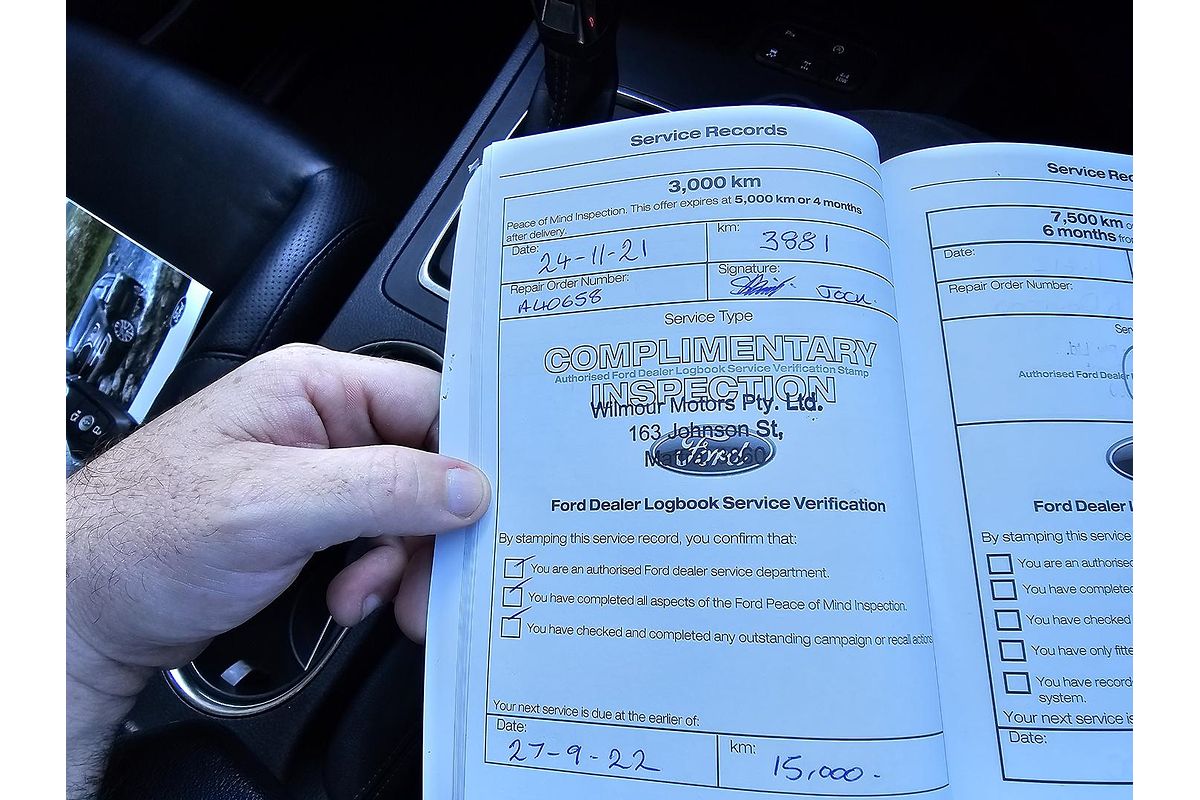 Service Records
3,000 km
Peace of Mind Inspection. This offer expires at 5,000 km or 4 months
after delivery.
Date:
24-11-21
km:
3981
Repair Order Number:
A40658
Signature:
Jock.
Service Type
COMPLIMENTARY
Authorised Ford Dealer Logbook Service Verification Stamp
INSPECTION
Wilmour Motors Pty. Ltd.
163 Johnson St,
Ford
Ford Dealer Logbook Service Verification
By stamping this service record, you confirm that:
You are an authorised Ford dealer service department.
You have completed all aspects of the Ford Peace of Mind Inspection.
You have checked and completed any outstanding campaign or recall actions
Your next service is due at the earlier of:
Date:
27-9-22
km:
15,000-
Service Rec
7,500 km
6 months from
Date:
Repair Order Number:
Ser
Authorised Ford Dealer
Ford Dealer L
By stamping this service
You are an authorised
You have completed
You have checked
You have only fitte
You have record
system.
Your next service is
Date: